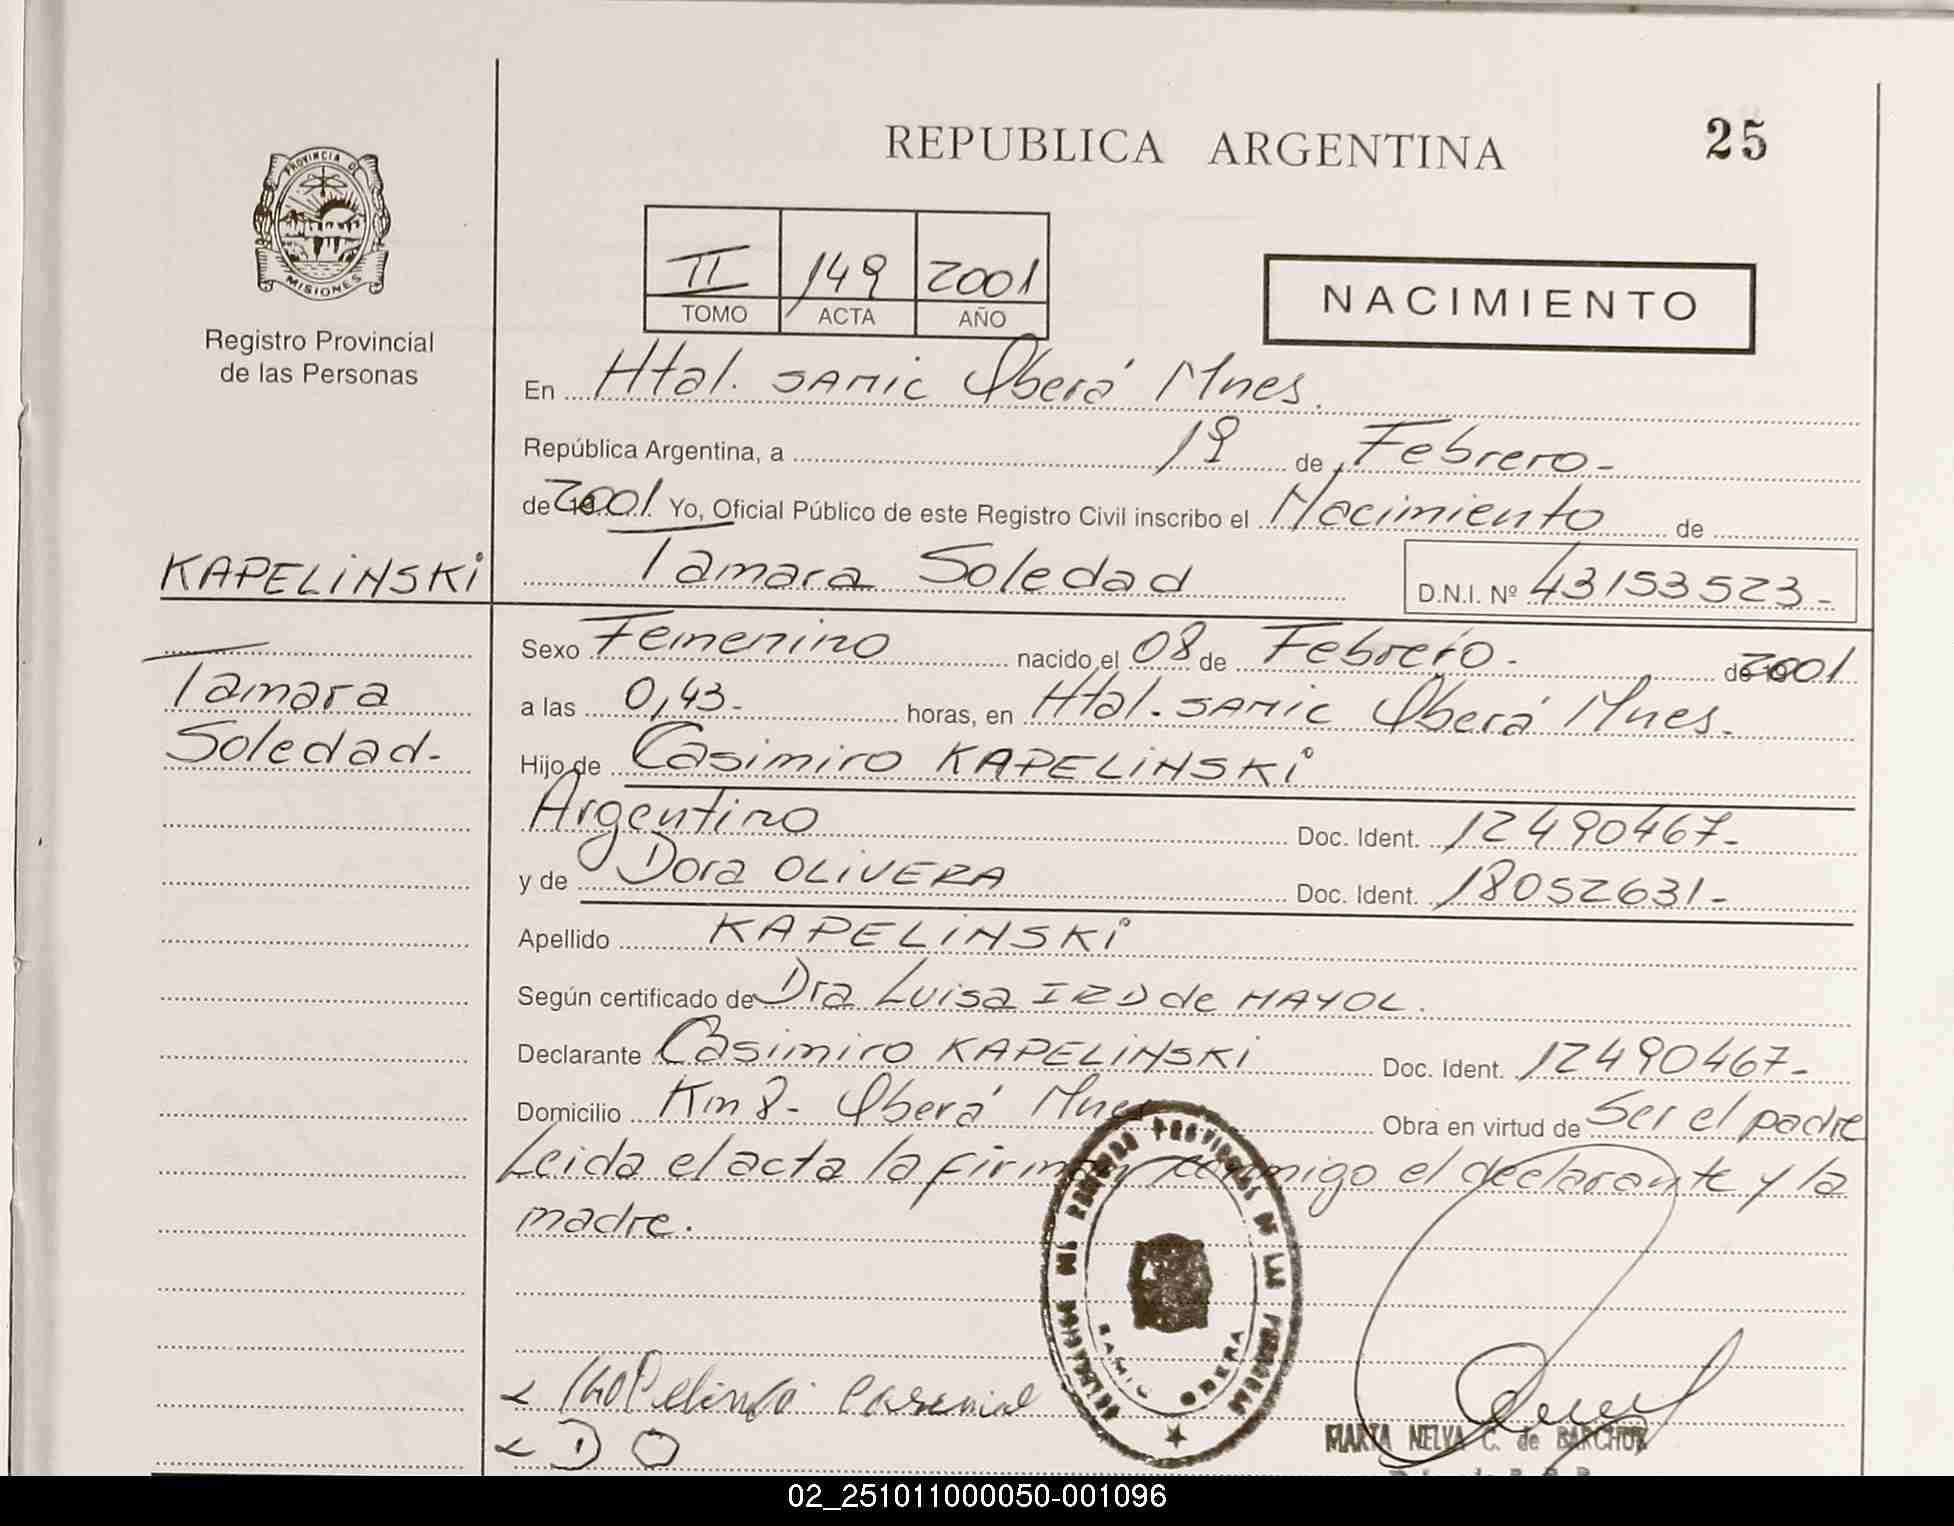 REPUBLICA ARGENTINA
25
PROVINCIA DE
MISIONES
Registro Provincial
de las Personas
II 149 2001
TOMO ACTA AÑO
NACIMIENTO
En Htal. SAMIC Oberá Mnes.
República Argentina, a 19 de Febrero-
de 2001 Yo, Oficial Público de este Registro Civil inscribo el Nacimiento de
KAPELINSKI
Tamara Soledad D.N.I. Nº 43153523-
Tamara
Soledad-
Sexo Femenino nacido el 08 de Febrero- de 2001
a las 0,43- horas, en Htal. SAMIC Oberá Mnes.
Hijo de Casimiro KAPELINSKI
Argentino Doc. Ident. 12490467-
y de Dora OLIVERA Doc. Ident. 18052631-
Apellido KAPELINSKI
Según certificado de Dra Luisa IRD de MAYOL.
Declarante Casimiro KAPELINSKI Doc. Ident. 12490467-
Domicilio Km 8- Oberá Mnes Obra en virtud de Ser el padre
Leida el acta la firman conmigo el declarante y la
madre.
DELEGACION DEL REGISTRO PROVINCIAL DE LAS PERSONAS
SAMIC OBERA
D O
MARTA NELVA C. de BARCHUK
02_251011000050-001096